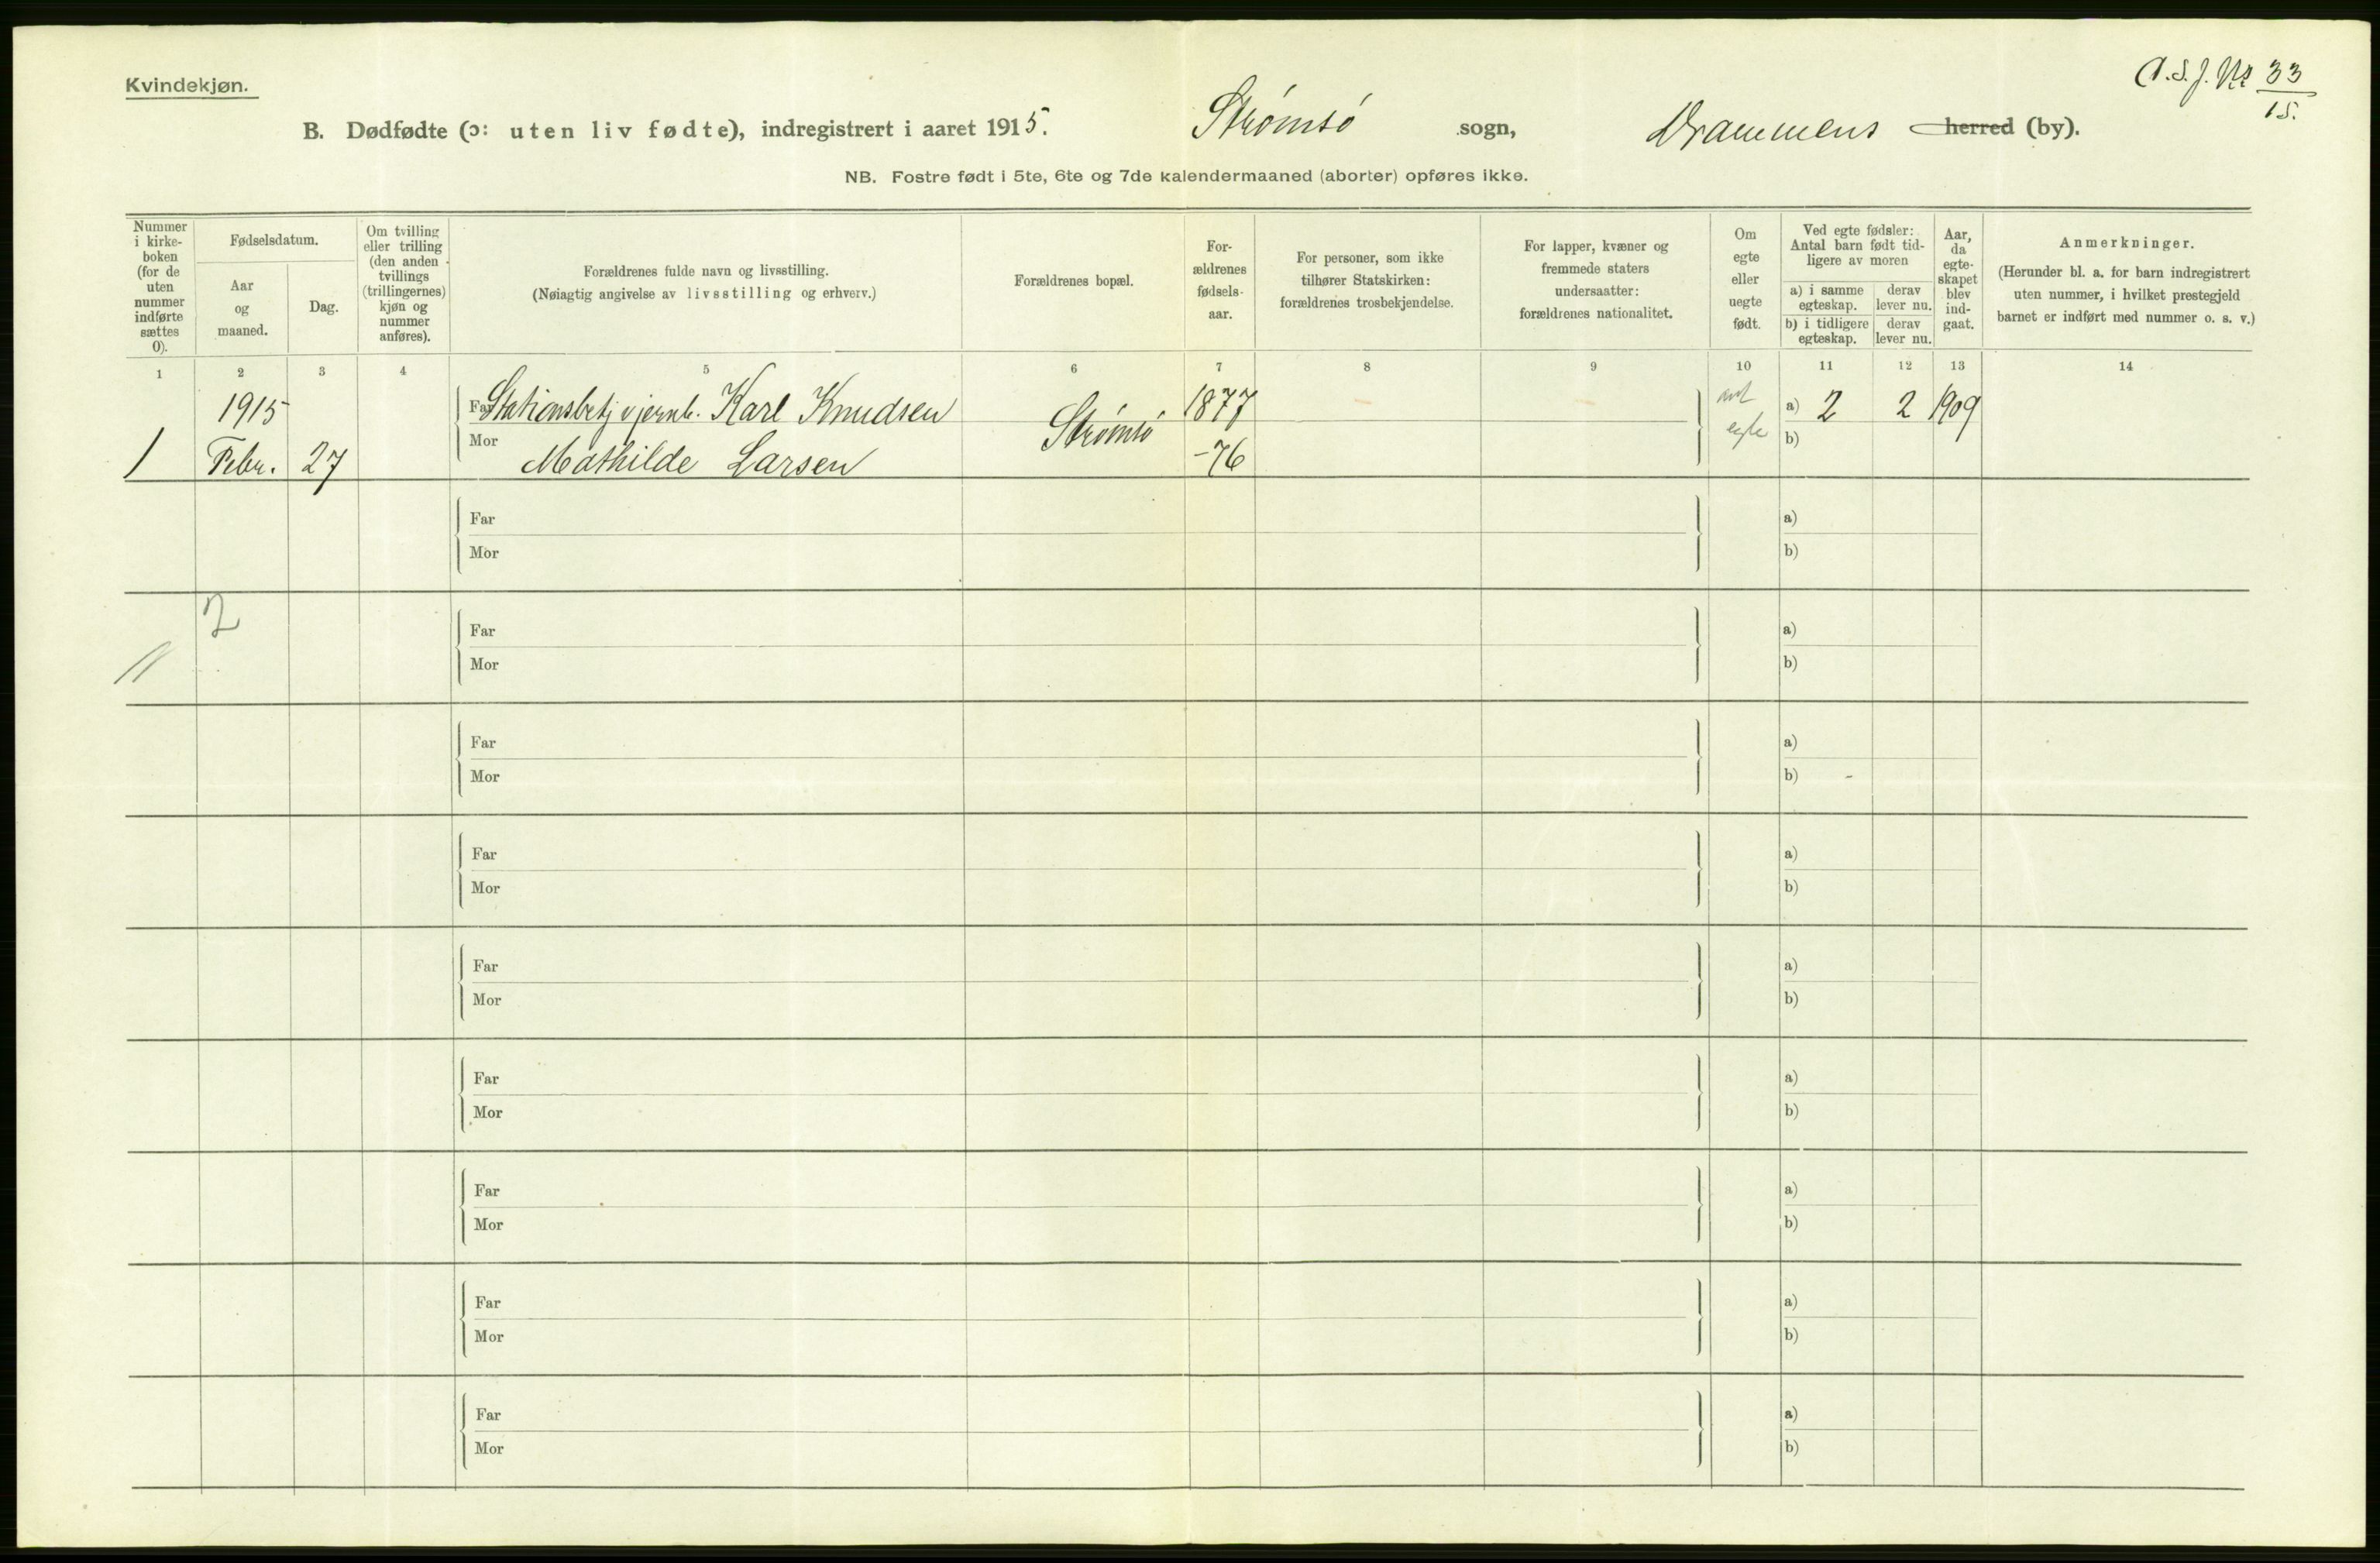 Kvindekjøn.
A.S.J. № 33
15.
B. Dødfødte (ɔ: uten liv fødte), indregistrert i aaret 1915. Strømsø sogn, Drammens herred (by).
NB. Fostre født i 5te, 6te og 7de kalendermaaned (aborter) opføres ikke.
Nummer i kirke- boken (for de uten nummer indførte sættes 0).
Fødselsdatum.
Aar og maaned.
Dag.
Om tvilling eller trilling (den anden tvillings (trillingernes) kjøn og nummer anføres).
Forældrenes fulde navn og livsstilling.
(Nøiagtig angivelse av livsstilling og erhverv.)
Forældrenes bopæl.
For- ældrenes fødsels- aar.
For personer, som ikke tilhører Statskirken: forældrenes trosbekjendelse.
For lapper, kvæner og fremmede staters undersaatter: forældrenes nationalitet.
Om egte eller uegte født.
Ved egte fødsler: Antal barn født tid- ligere av moren
a) i samme egteskap.
derav lever nu.
b) i tidligere egteskap.
derav lever nu.
Aar, da egte- skapet blev ind- gaat.
Anmerkninger.
(Herunder bl. a. for barn indregistrert uten nummer, i hvilket prestegjeld barnet er indført med nummer o. s. v.)
1 2 3 4 5 6 7 8 9 10 11 12 13 14
1915 Far Stationsbetj v jernb. Karl Knudsen Strømsø 1877 a) 2 2 1909
1 Febr. 27 Mor Mathilde Larsen -76 egte b)
Far a)
Mor b)
2
Far a)
Mor b)
Far a)
Mor b)
Far a)
Mor b)
Far a)
Mor b)
Far a)
Mor b)
Far a)
Mor b)
Far a)
Mor b)
Far a)
Mor b)